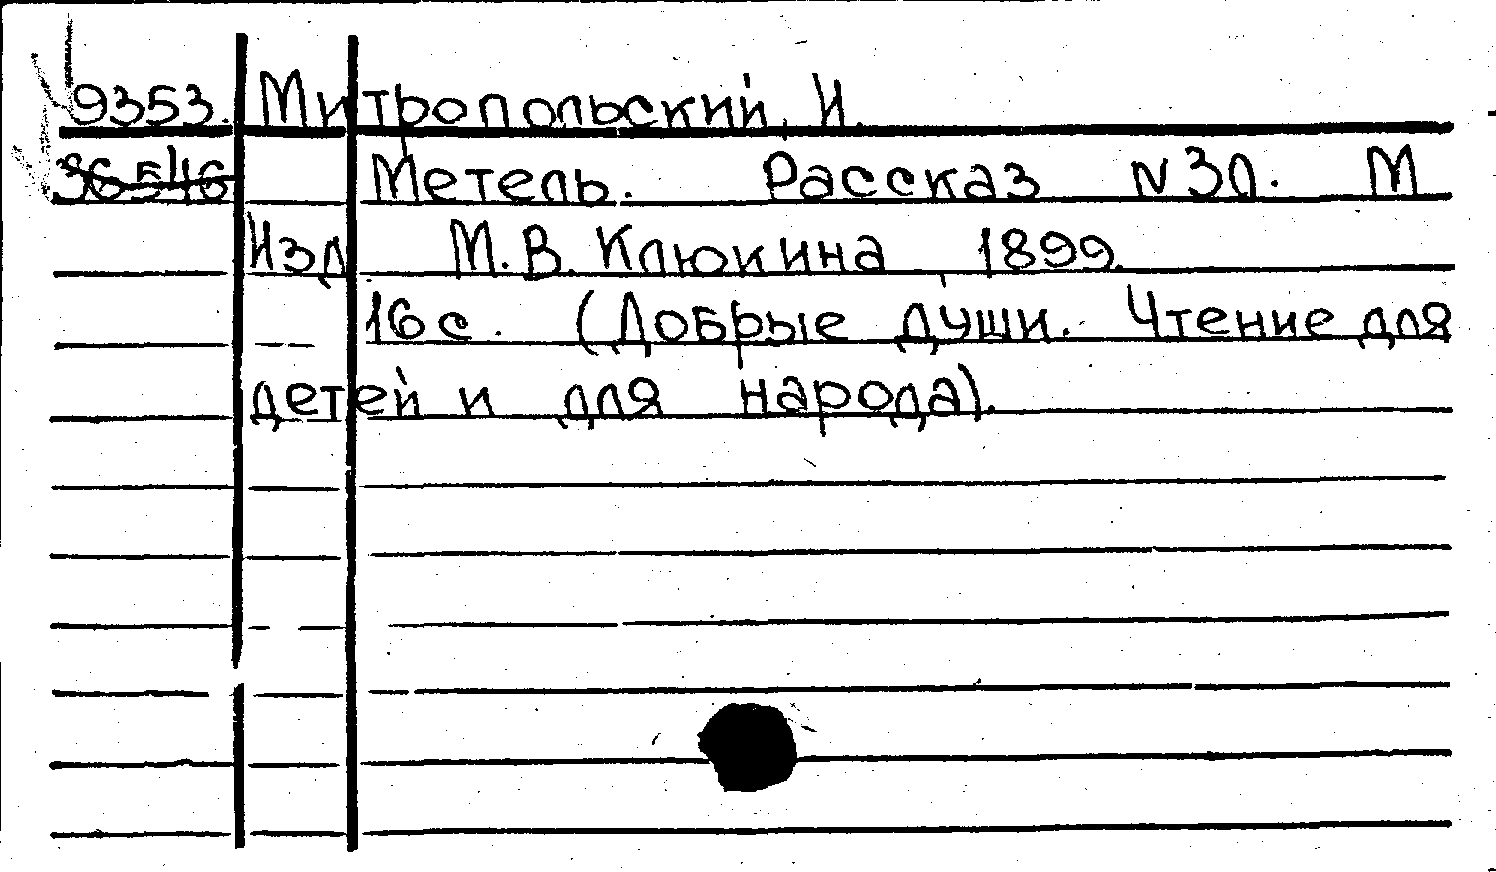 9353. Митропольский, И.
36546 Метель. Рассказ N30. М
Изд. М.В. Клюкина, 1899.
16 с. (Добрые души. Чтение для
детей и для народа).